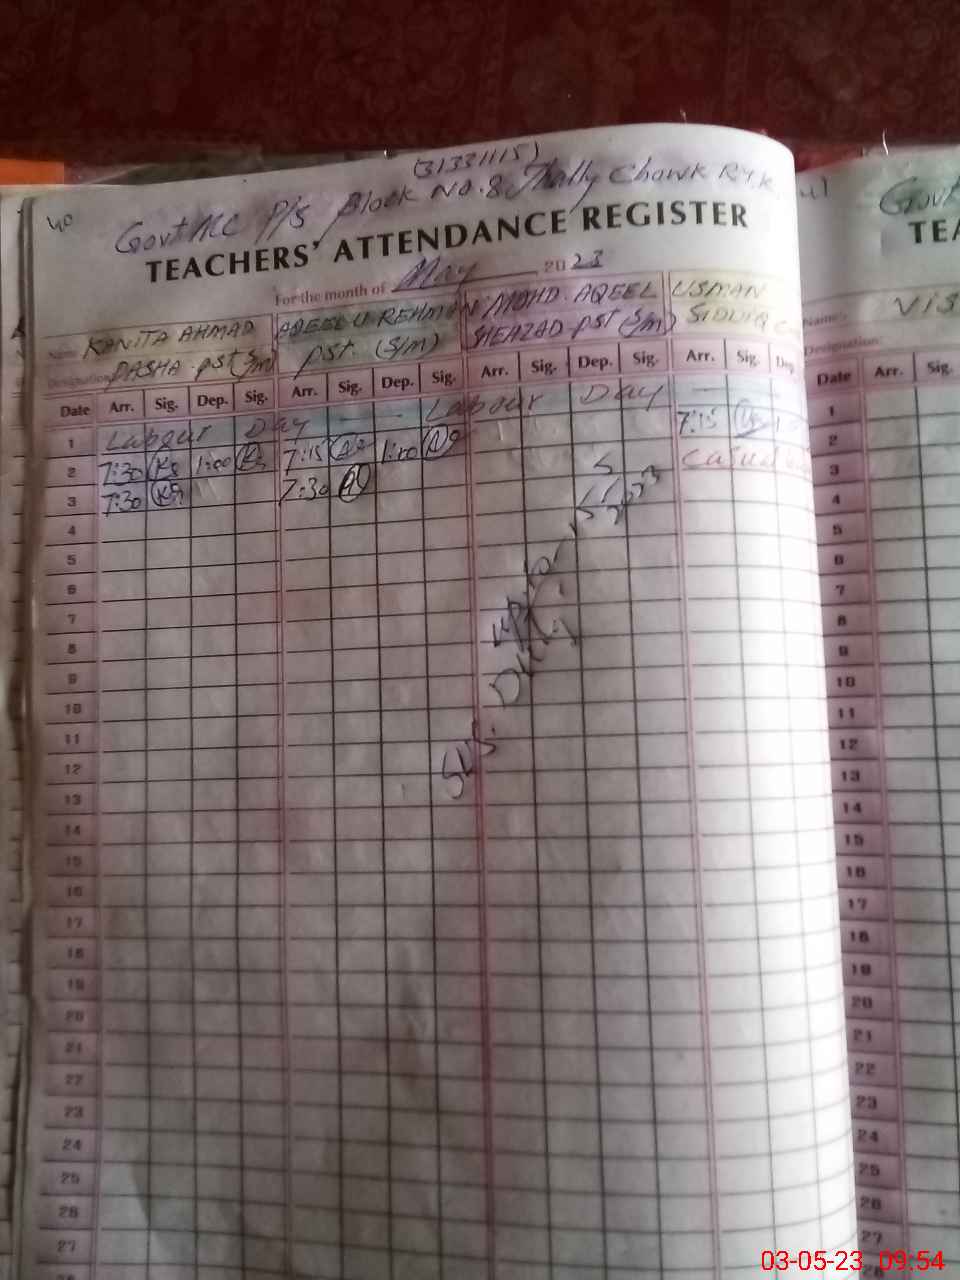 40
(31331115)
Govt MC P/S Block No. 8 Thally Chowk R.Y.K
TEACHERS' ATTENDANCE REGISTER
For the month of May 2023
Name KANITA AHMAD AQEEL U REHMAN MOHD. AQEEL USMAN
Designation PASHA PST S/M PST. (S/M) SHEHZAD PST (S/M) SIDDIQ
Date Arr. Sig. Dep. Sig. Arr. Sig. Dep. Sig. Arr. Sig. Dep. Sig. Arr. Sig. Dep.
1 Labour Day — — Labour Day —
2 7:30 KS 1:00 7:15 1:10 7:15
3 7:30 KS 7:30 Casual
4
5
6
7
8
9
10
11
12
13
14
15
16
17
18
19
20
21
22
23
24
25
26
27
Duty
2023
Govt
TEA
Name
Designation
Date Arr. Sig.
1
2
3
4
5
6
7
8
9
10
11
12
13
14
15
16
17
18
19
20
21
22
23
24
25
26
27
03-05-23 09:54